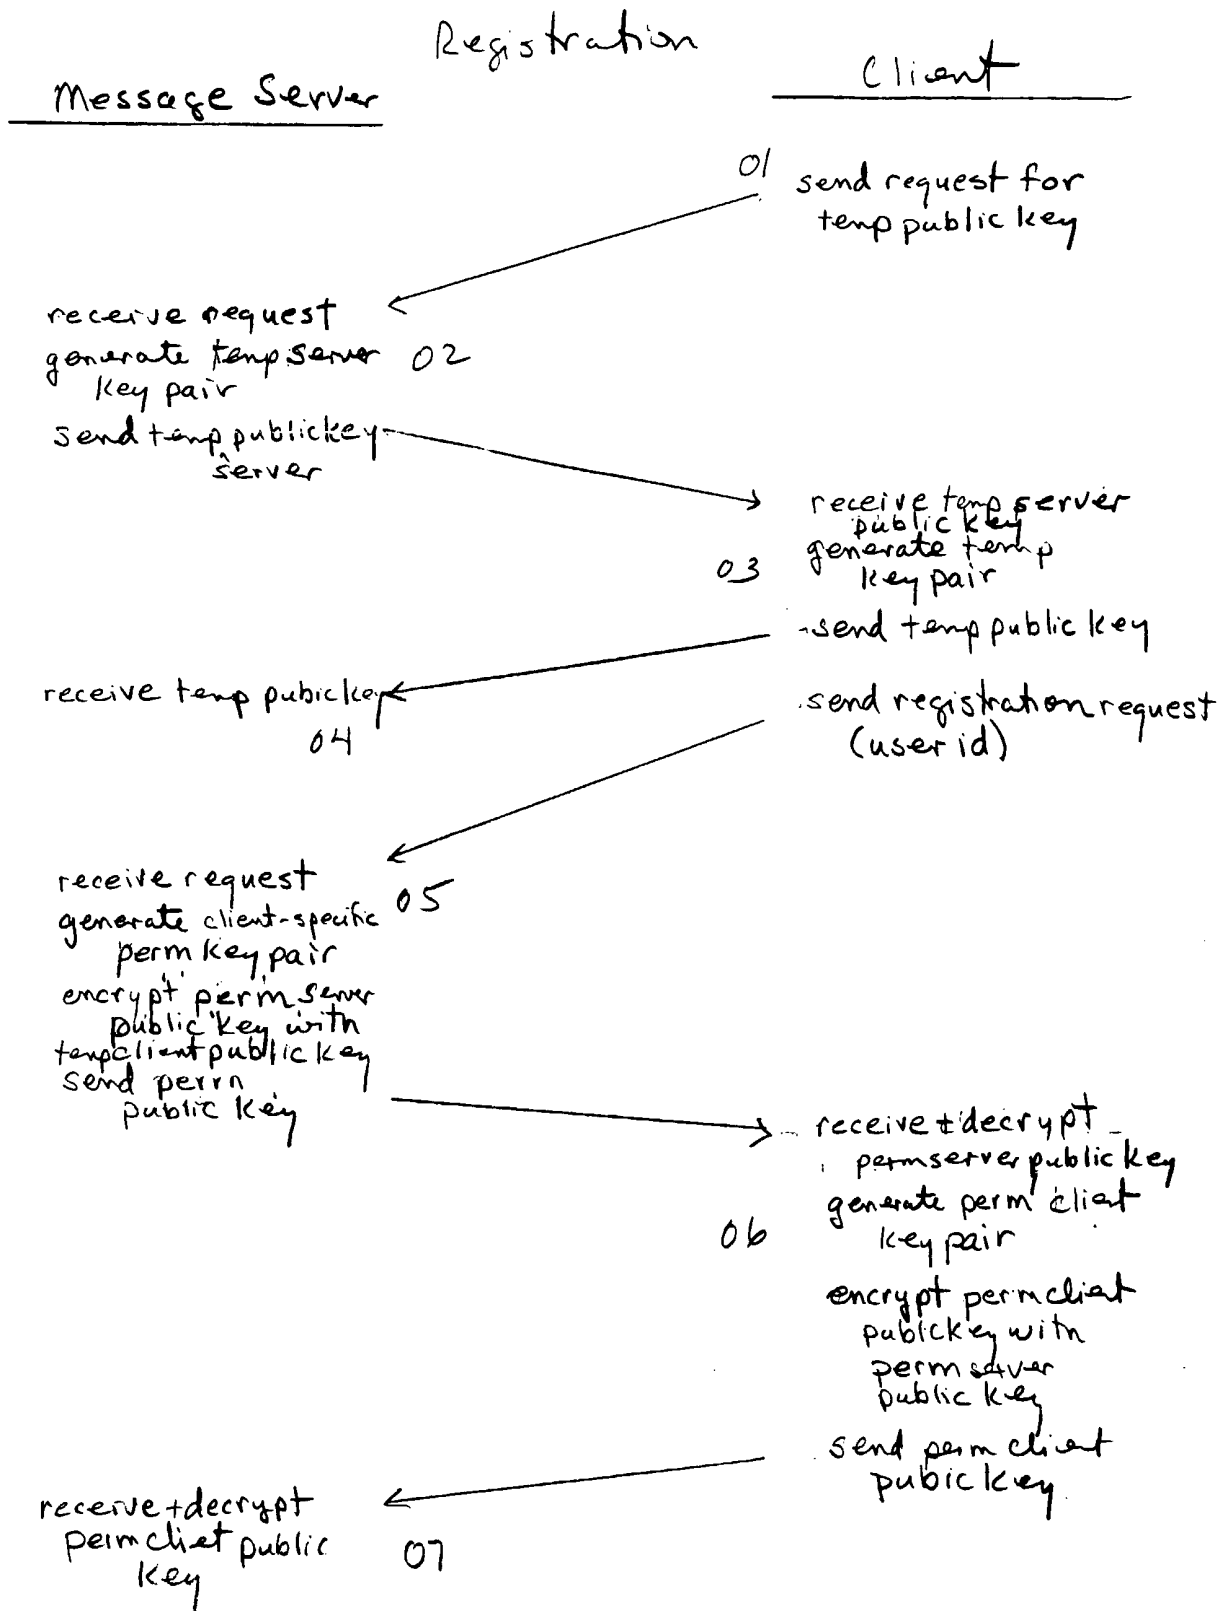 Registration
Message Server
Client
01
send request for
temp public key
receive request
generate temp server
key pair
02
send temp public key
^
server
receive temp server
public key
generate temp
key pair
03
send temp public key
receive temp pubic key
04
send registration request
(user id)
receive request
05
generate client-specific
perm key pair
encrypt perm server
public key with
temp client public key
send perm
public key
receive + decrypt
perm server public key
generate perm client
key pair
06
encrypt perm client
publickey with
perm server
public key
send perm client
pubic key
receive + decrypt
perm cliet public
key
07